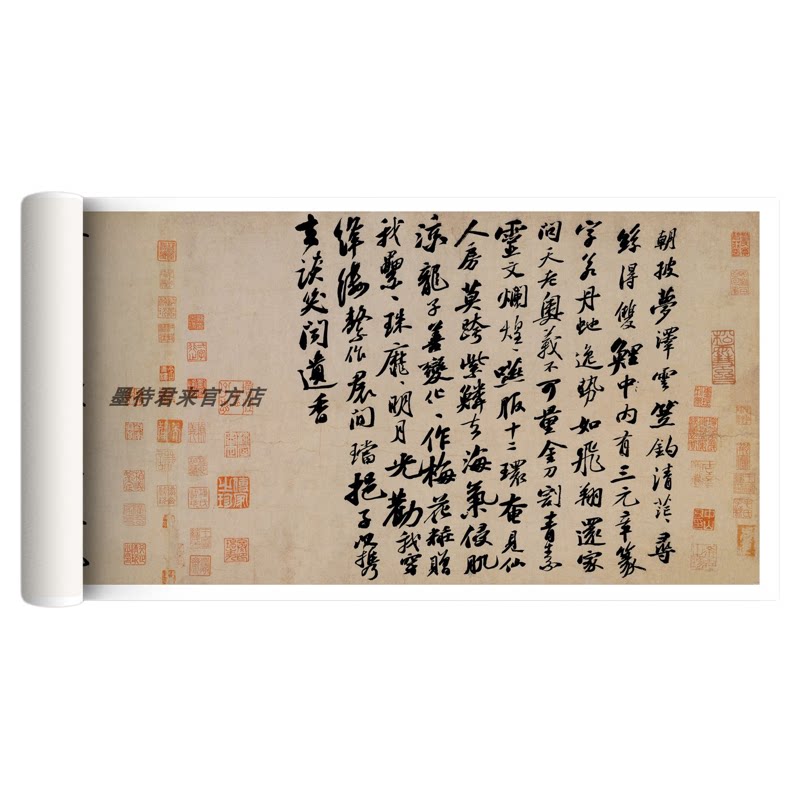 朝披夢澤雲笠釣清茫、尋
絲得雙鯉中、內有三元章篆
字若丹蛇逸勢如飛翔還家
問天老奧義不可量金刀割青素
靈文爛煌、嚥服十二環奄見仙
人房莫跨紫鱗去海氣侵肌
涼龍子善變化、作梅花粧贈
我纍、珠靡、明月光勸我穿
絳縷繫作裙間璫挹子以攜
去談笑聞遺香
墨待君来官方店